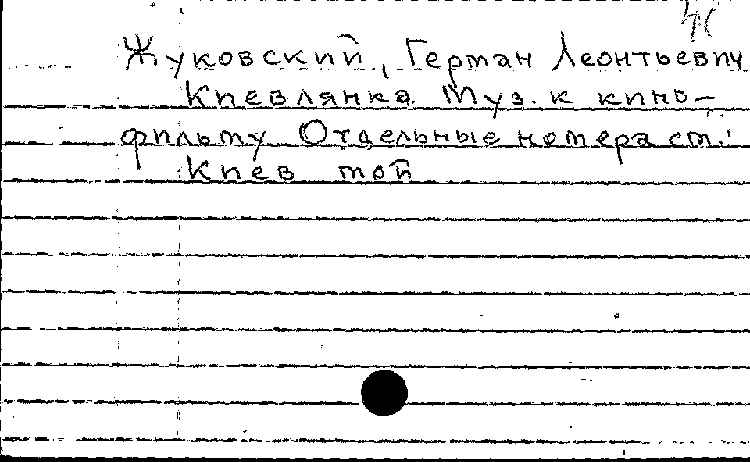 Жуковский, Герман Леонтьевич
Киевлянка. Муз. к кино-
фильму Отдельные номера см.:
Киев мой